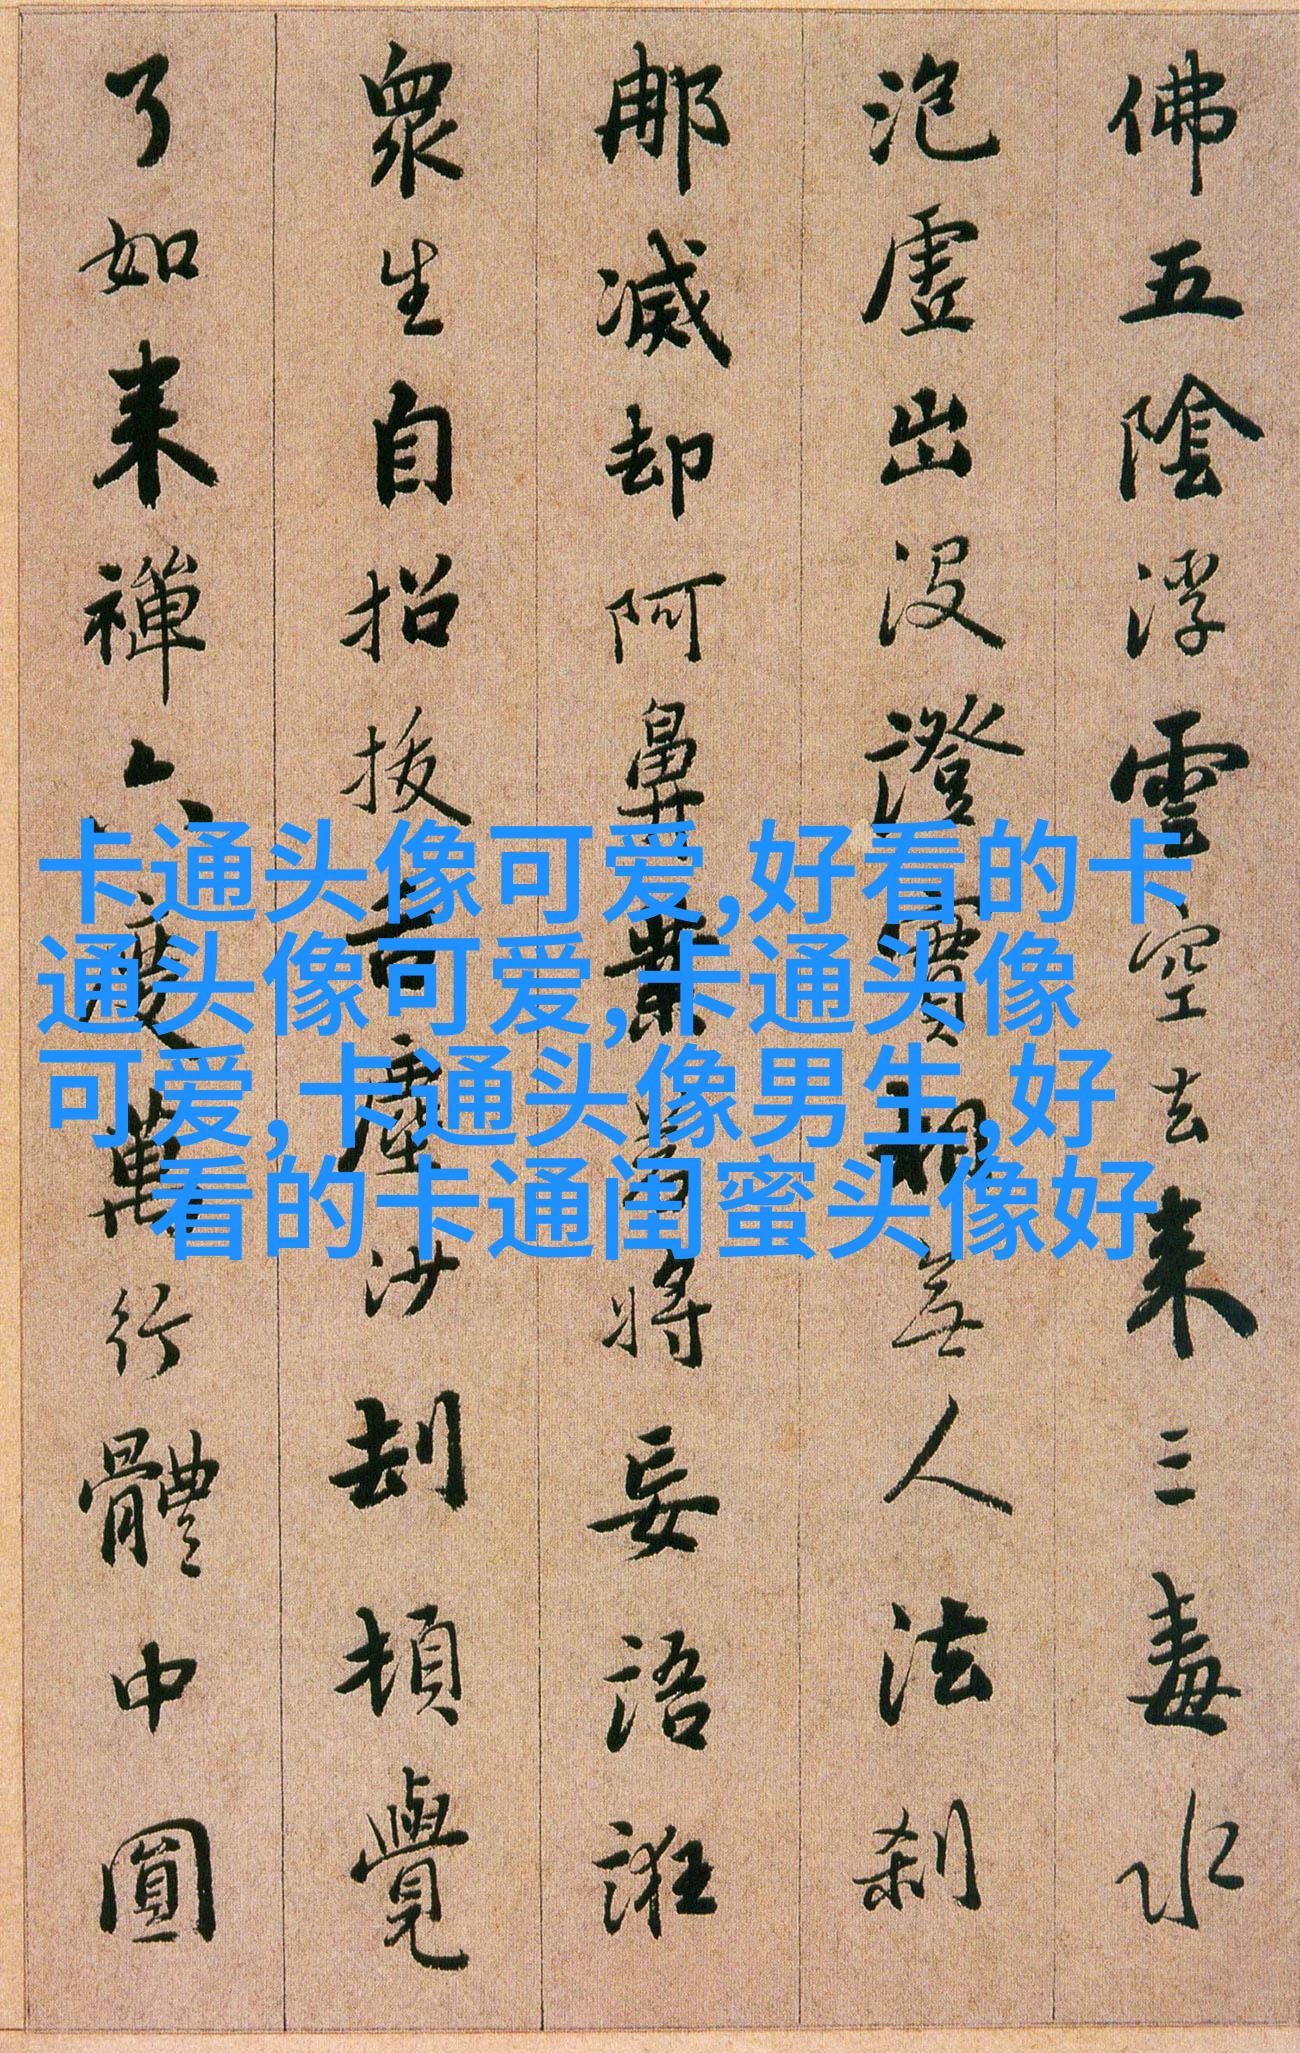 佛五陰浮雲空去来三毒水
泡虛出没證實相無人法刹
那滅却阿鼻業若將妄語誑
眾生自招拔舌塵沙劫頓覺
了如来禪六度萬行體中圓
卡通头像可爱,好看的卡
通头像可爱,卡通头像
可爱,卡通头像男生,好
看的卡通闺蜜头像好